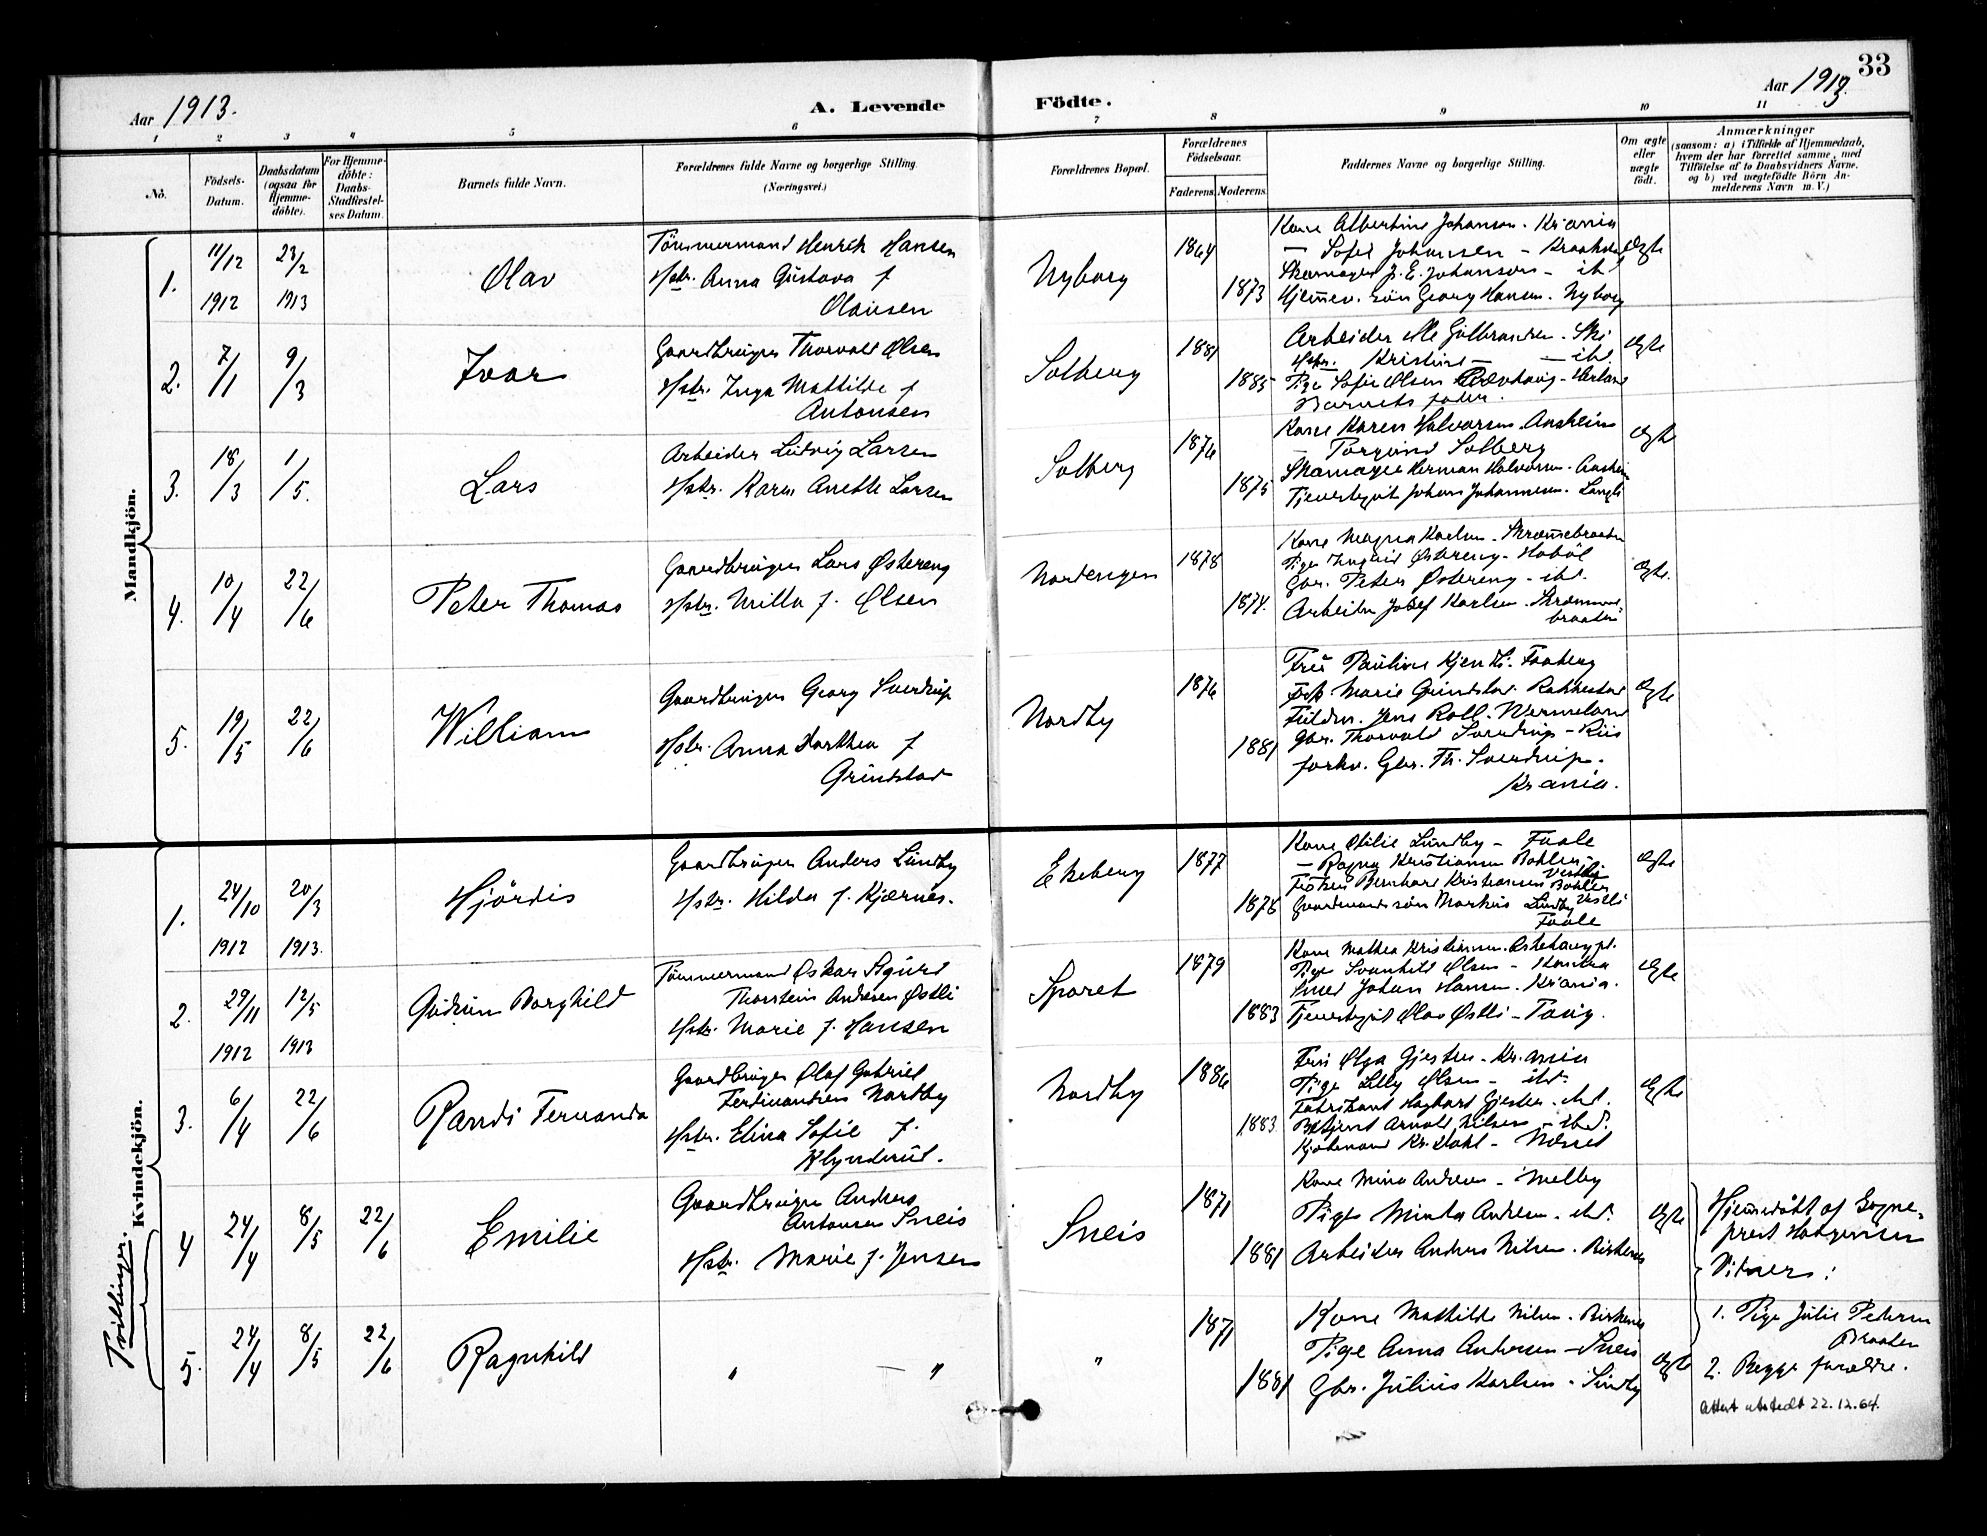 33
Aar 1913. A. Levende Födte. Aar 1913.
1 2 3 4 5 6 7 8 9 10 11
No. Födsels-Datum. Daabsdatum (ogsaa for Hjemme-döbte). For Hjemme-döbte: Daabs-Stadfæstel-ses Datum. Barnets fulde Navn. Forældrenes fulde Navne og borgerlige Stilling. (Næringsvei.) Forældrenes Bopæl. Forældrenes Födselsaar. Faderens. Moderens. Faddernes Navne og borgerlige Stilling. Om ægte eller uægte födt. Anmærkninger (saasom: a) i Tilfælde af Hjemmedaab, hvem der har forrettet samme, med Tilföielse af to Daabsvidners Navne, og b) ved uægtefödte Börn An-melderens Navn m. V.)
Mandkjön.
1. 11/12 1912 23/2 1913 Olav
Tömmermand Henrik Hansen
Hstr. Anna Gustava f.
Olausen
Nyborg 1864 1873
Kone Albertine Johansen - Kr.ania
— Sofie Johansen - Kraakstad
Skomager J. E. Johanson - ibd.
Hjemmev. sön Georg Hansen. Nyborg
Ægte
2. 7/1 9/3 Ivar
Gaardbruger Thorvald Olsen
Hstr. Inga Mathilde f.
Antonsen
Solberg 1881 1885
Arbeider Ole Gulbrandsen. Ski
Hstr. Kristine — — ibd.
Pige Sofie Olsen
Barnets fader.
Ægte
3. 18/3 1/5. Lars
Arbeider Ludvig Larsen
Hstr. Karen Anette Larsen
Solberg 1876 1875
Kone Karen Halvorsen. Aasheim
— Torgund Solberg
Skomager Herman Halvorsen. Aasheim
Tjenestegut Johan Johannesen. Langli
Ægte
4. 10/4 22/6 Peter Thomas
Gaardbruger Lars Østereng
Hstr. Milla f. Olsen
Nordengen 1878 1874.
Kone Magna Karlsen. Strømsbraaten
Pige Ingrid Østereng - Hobøl
Gbr. Peter Østereng - ibd.
Arbeider Josef Karlsen. Strømms-
braaten
Ægte.
5. 19/5 22/6 William
Gaardbruger Georg Sverdrup
Hstr. Anna Dorthea f.
Grindstad
Nordby 1876 1881
Frü Pauline Kjendli. Faaberg
Frk. Marie Grindstad. Rakkestad
Fuldm. Jens Roll. Wermeland
Gbr. Thorvald Sverdrup - Riis
forhv. Gbr. Th. Sverdrup.
Kr.ania.
Ægte
Kvindekjön.
1. 24/10 1912 20/3 1913. Hjördis
Gaardbruger Anders Lundby
Hstr. Hilda f. Kjærnes.
Ekeberg 1877 1878
Kone Otilie Lundby - Faale
— Ragna Kristiansen Bohler -
Vestby
Bernhard Kristiansen Bohler
Gaardmandssön Markus Lundby Vestli
Faale
Ægte
2. 29/11 1912 12/5 1913 Gudrun Borghild
Tömmermand Oskar Sigurd
Thorstein Andresen Østli
Hstr. Marie f. Hansen
Sporet 1879 1883
Kone Mathea Kristiansen. Askehaug pl.
Pige Svanhild Olsen -
Smed Johan Hansen. Kr.ania.
Tjenestegut Olav Østli - Taug.
Ægte
3. 6/4 22/6 Randi Fernanda
Gaardbruger Olaf Gabriel
Ferdinandsen Nordby
Hstr. Elina Sofie f.
Klynderud.
Nordby 1886 1883
Frü Olga Gjester - Kr.ania
Pige Lilly Olsen - ibd.
Fabrikant Haghart Gjester - ibd.
Betjent Arnold Nilsen - ibd.
Kjöbmand Kr. Dahl - Næsset
Ægte
Tvillinger.
4 24/4 8/5 22/6 Emilie
Gaardbruger Anders
Antonsen Sneis
Hstr. Marie f. Jensen
Sneis 1871 1881
Kone Mina Andersen - Melby
Pige Minda Andersen - ibd.
Arbeider Anders Nilsen. Birkenes
Ægte
Hjemmedøbt af Sogne-
prest Haagensen
Vidners:
1. Pige Julie Petersen
Braaten
2. Begge forældre.
Attest utstedt 22.12.64.
5. 24/4 8/5 22/6 Ragnhild
" " " 1871 1881
Kone Mathilde Nilsen. Birkenes
Pige Anna Andersen - Sneis
Gbr. Julius Karlsen - Sundby
Ægte